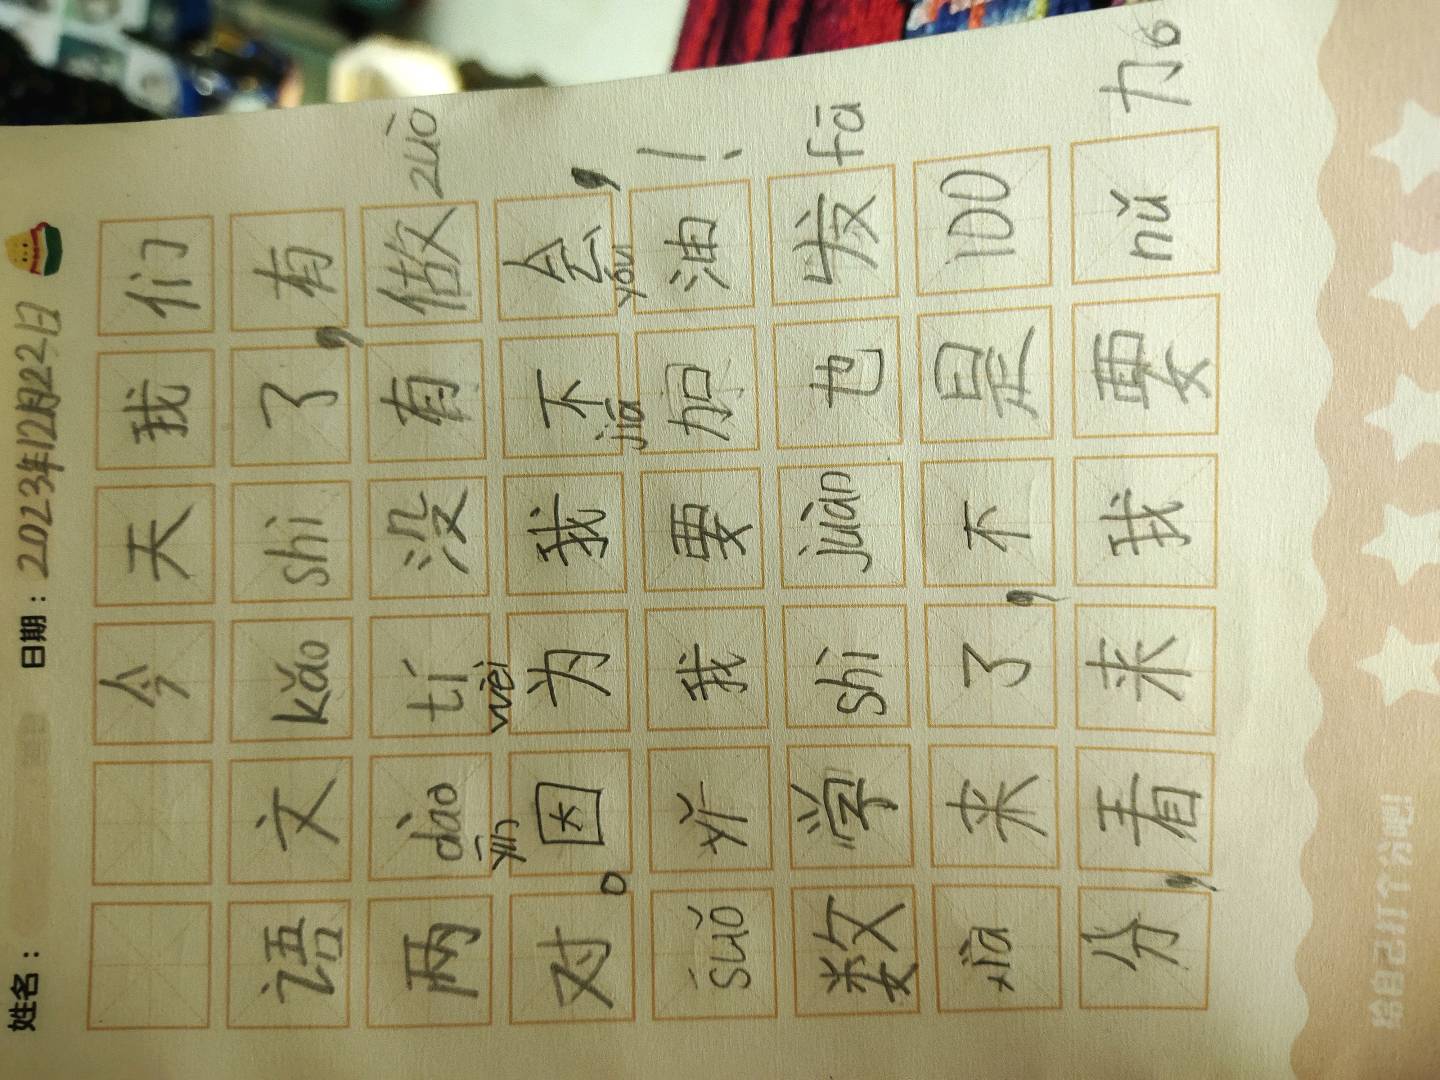 姓名： 日期：2023年12月22日
今天我们
语文kǎoshì了，有
两dào tí没有做zuò
yīn wèi
对。因为我不会，
jiā yóu
suǒ以我要加油！
数学shì juàn也发fā
xià来了，不是100
分，看来我要nǔ力6
给自己打个分吧!